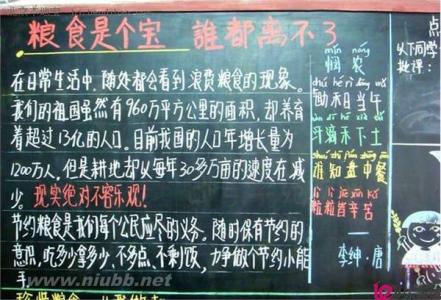 粮食是个宝 誰都离不了
在日常生活中,随处都会看到浪费粮食的现象。
我们的祖国虽然有960万平方公里的面积,却养育
着超过13亿的人口。目前我国的人口年增长量为
1200万人,但是耕地却以每年30多万亩的速度在减
少。现实绝对不容乐观!
节约粮食是我们每个公民应尽的义务。随时保有节约的
意识,吃多少拿多少,不多点、不剩饭,力争做个节约小能
手。
mǐn nóng
悯农
chú hé rì dāng wǔ
锄禾日当午
汗滴禾下土
谁知盘中餐
粒粒皆辛苦
李绅·唐
点
以下同学
批评:
www.niubb.net